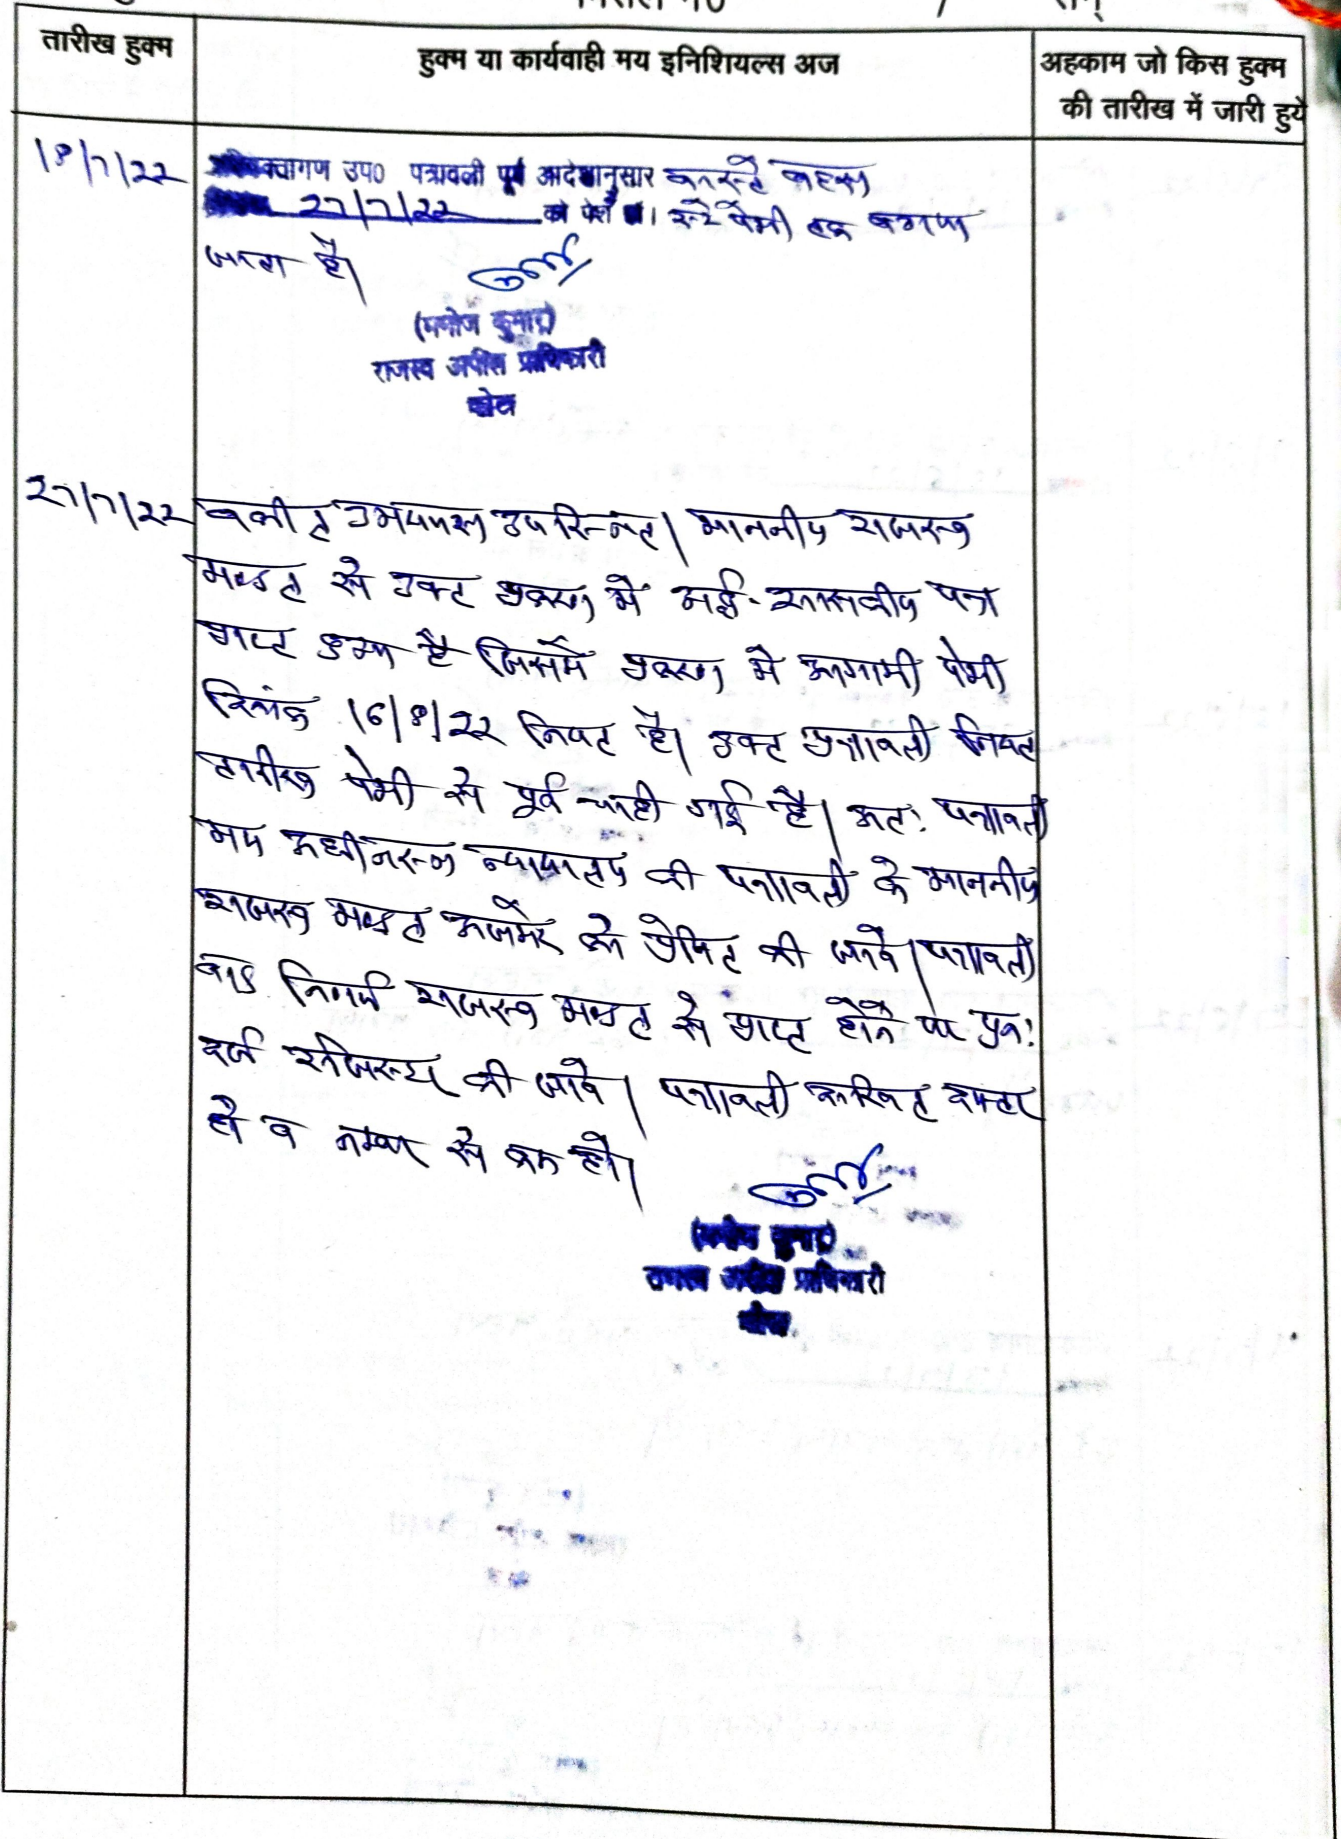 तारीख हुक्म
हुक्म या कार्यवाही मय इनिशियल्स अज
अहकाम जो किस हुक्म
की तारीख में जारी हुये
18/7/22
उप० पत्रावली पूर्व आदेशानुसार वास्ते बहस
27/7/22 को पेश हो। स्टे पेशी तक बढाया
जाता है।
(मनोज कुमार)
राजस्व अपील प्राधिकारी
27/7/22
वकील उभयपक्ष उपस्थित। माननीय राजस्व
मण्डल से उक्त प्रकरण में अर्द्ध-शासकीय पत्र
प्राप्त हुआ है जिसमें प्रकरण में आगामी पेशी
दिनांक 16/8/22 नियत है। उक्त पत्रावली नियत
तारीख पेशी से पूर्व चाही गई है। अतः पत्रावली
मय अधीनस्थ न्यायालय की पत्रावली के माननीय
राजस्व मण्डल अजमेर को प्रेषित की जावे। पत्रावली
बाद निर्णय राजस्व मण्डल से प्राप्त होने पर पुनः
दर्ज रजिस्टर की जावे। पत्रावली दाखिल दफ्तर
हो व नम्बर से कम हो।
(मनोज कुमार)
राजस्व अपील प्राधिकारी